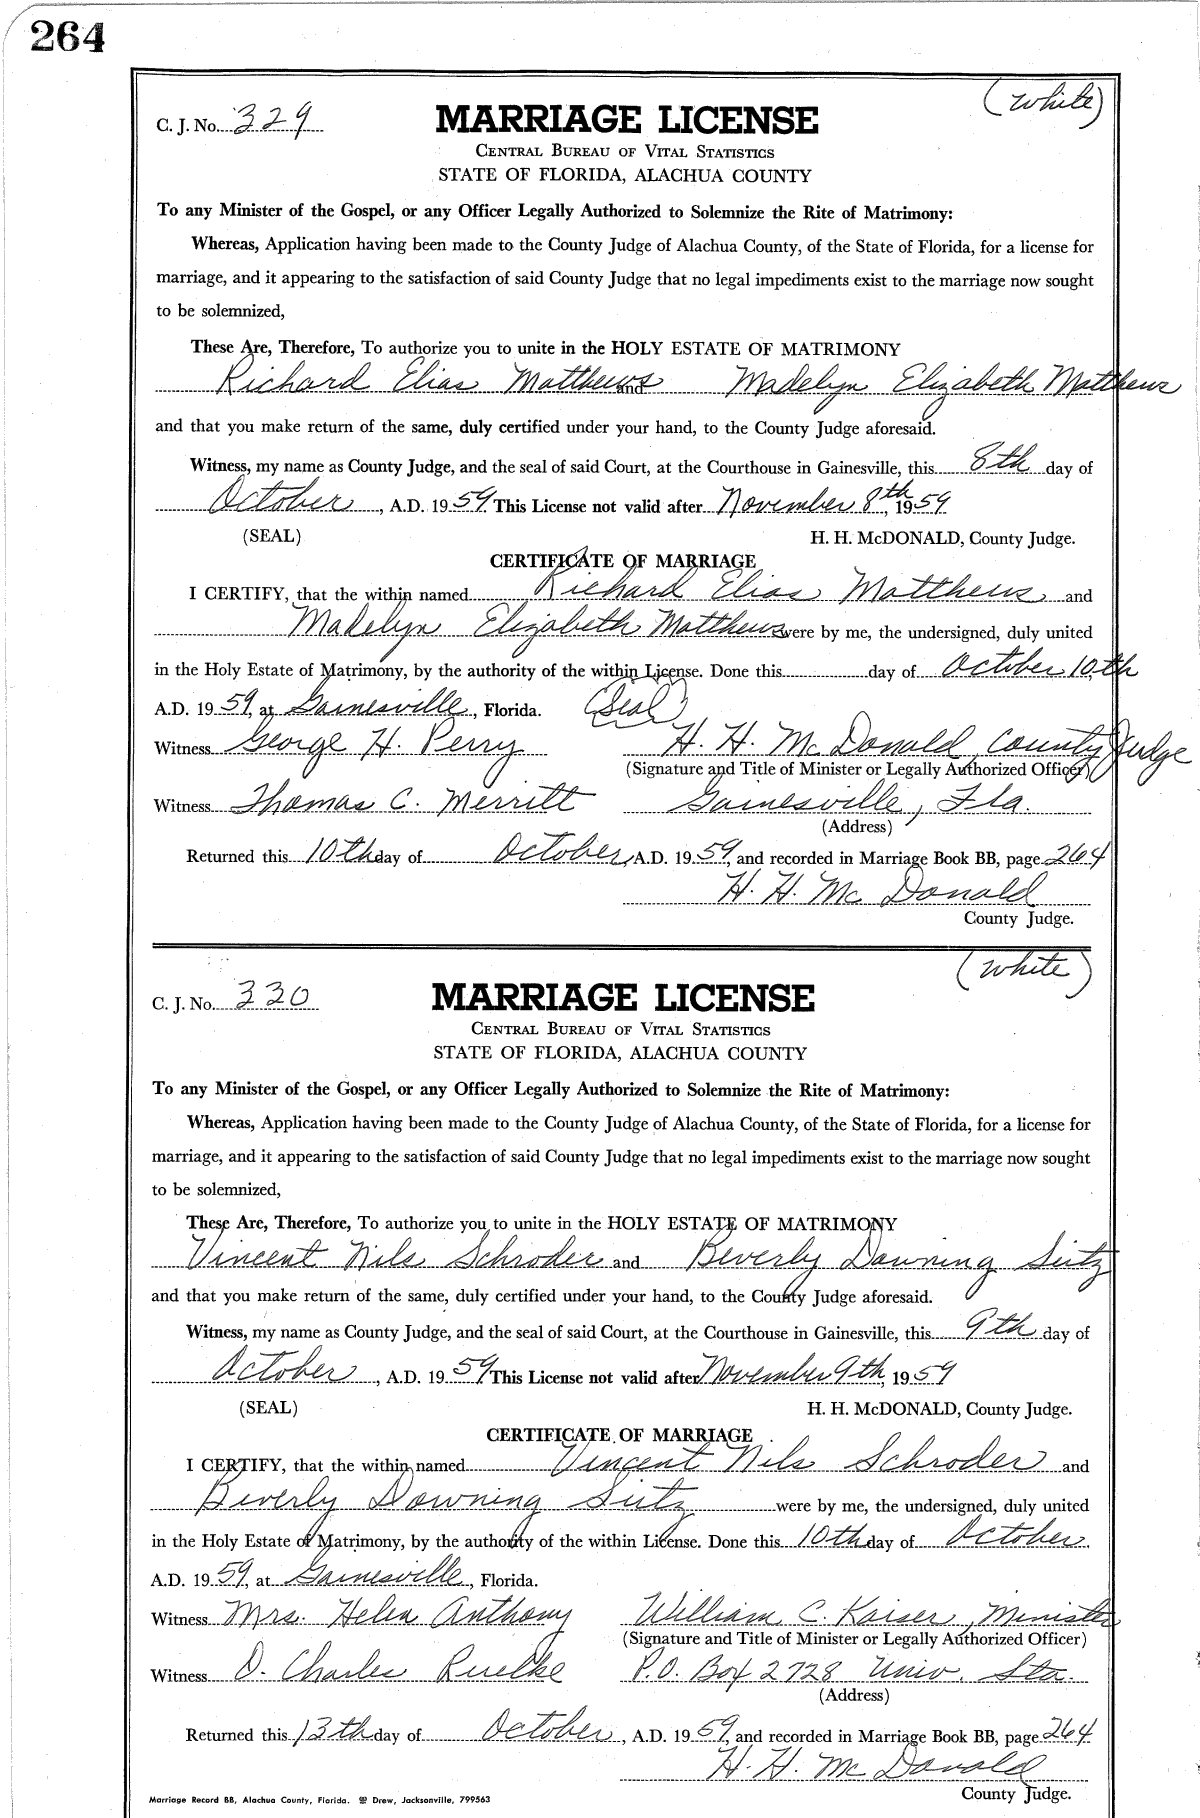 264
(White)
C. J. No. 329 MARRIAGE LICENSE
CENTRAL BUREAU OF VITAL STATISTICS
STATE OF FLORIDA, ALACHUA COUNTY
To any Minister of the Gospel, or any Officer Legally Authorized to Solemnize the Rite of Matrimony:
Whereas, Application having been made to the County Judge of Alachua County, of the State of Florida, for a license for
marriage, and it appearing to the satisfaction of said County Judge that no legal impediments exist to the marriage now sought
to be solemnized,
These Are, Therefore, To authorize you to unite in the HOLY ESTATE OF MATRIMONY
Richard Elias Matthews and Madelyn Elizabeth Matthews
and that you make return of the same, duly certified under your hand, to the County Judge aforesaid.
Witness, my name as County Judge, and the seal of said Court, at the Courthouse in Gainesville, this 8th day of
October, A.D. 1959. This License not valid after November 8th, 1959
(SEAL) H. H. McDONALD, County Judge.
CERTIFICATE OF MARRIAGE
I CERTIFY, that the within named Richard Elias Matthews and
Madelyn Elizabeth Matthews were by me, the undersigned, duly united
in the Holy Estate of Matrimony, by the authority of the within License. Done this day of October 10,th
A.D. 1959, at Gainesville, Florida. (Seal)
Witness George H. Perry H. H. McDonald, County Judge
(Signature and Title of Minister or Legally Authorized Officer)
Witness Thomas C. Merritt Gainesville, Fla.
(Address)
Returned this 10th day of October, A.D. 1959, and recorded in Marriage Book BB, page 264
H. H. McDonald
County Judge.
(White)
C. J. No. 330 MARRIAGE LICENSE
CENTRAL BUREAU OF VITAL STATISTICS
STATE OF FLORIDA, ALACHUA COUNTY
To any Minister of the Gospel, or any Officer Legally Authorized to Solemnize the Rite of Matrimony:
Whereas, Application having been made to the County Judge of Alachua County, of the State of Florida, for a license for
marriage, and it appearing to the satisfaction of said County Judge that no legal impediments exist to the marriage now sought
to be solemnized,
These Are, Therefore, To authorize you to unite in the HOLY ESTATE OF MATRIMONY
Vincent Nils Schroder and Beverly Downing Seitz
and that you make return of the same, duly certified under your hand, to the County Judge aforesaid.
Witness, my name as County Judge, and the seal of said Court, at the Courthouse in Gainesville, this 9th day of
October, A.D. 1959 This License not valid after November 9th, 1959
(SEAL) H. H. McDONALD, County Judge.
CERTIFICATE OF MARRIAGE
I CERTIFY, that the within named Vincent Nils Schroder and
Beverly Downing Seitz were by me, the undersigned, duly united
in the Holy Estate of Matrimony, by the authority of the within License. Done this 10th day of October,
A.D. 1959, at Gainesville, Florida.
Witness Mrs. Helen Anthony William C. Kaiser, Minister
(Signature and Title of Minister or Legally Authorized Officer)
Witness D. Charles P.O. Box 2728 Univ. Sta.
(Address)
Returned this 13th day of October, A.D. 1959, and recorded in Marriage Book BB, page 264
H. H. McDonald
County Judge.
Marriage Record BB, Alachua County, Florida. Drew, Jacksonville, 799563